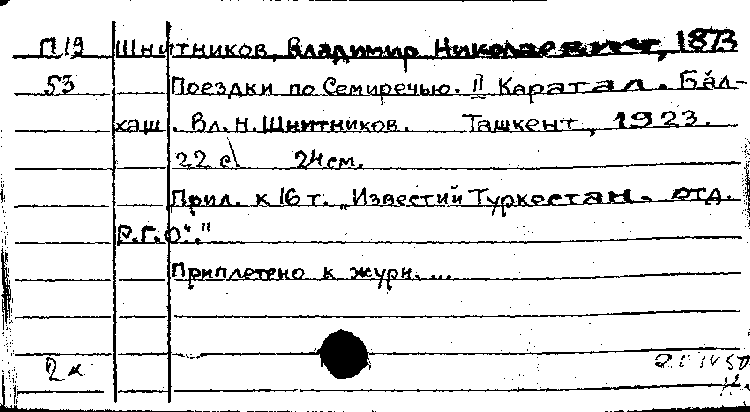 П19 Шнитников, Владимир Николаевич, 1873
53 Поездки по Семиречью. II Каратал. Бал-
хаш. Вл. Н. Шнитников. Ташкент, 1923.
22 с 24 см.
Прил. к 16 т. „Известий Туркестан. отд.
Р.Г.О."."
Приплетено к журн. ...
2к